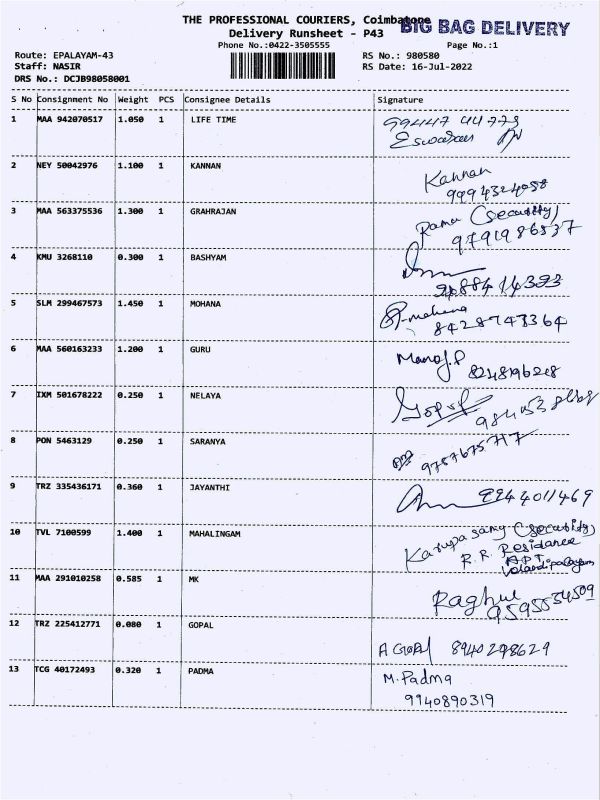 THE PROFESSIONAL COURIERS, Coimbatore
BIG BAG DELIVERY
Delivery Runsheet - P43
Phone No.:0422-3505555
Page No.:1
Route: EPALAYAM-43
RS No.: 980580
Staff: NASIR
RS Date: 16-Jul-2022
DRS No.: DCJB98058001
S No Consignment No Weight PCS Consignee Details Signature
1 MAA 942070517 1.050 1 LIFE TIME 99447 44773
Eswaran
2 NEY 50042976 1.100 1 KANNAN Kannan
3 MAA 563375536 1.300 1 GRAHRAJAN Rama (security)
9791986537
4 KMU 3268110 0.300 1 BASHYAM
5 SLM 299467573 1.450 1 MOHANA P-mohana
8428743364
6 MAA 560163233 1.200 1 GURU Manoj.P
8248196268
7 IXM 501678222 0.250 1 NELAYA Gopal
8 PON 5463129 0.250 1 SARANYA
9787675717
9 TRZ 335436171 0.360 1 JAYANTHI 9944011469
10 TVL 7100599 1.400 1 MAHALINGAM Karupasamy (security)
R.R. Residance
APT
11 MAA 291010258 0.585 1 MK Raghul
9595534509
12 TRZ 225412771 0.080 1 GOPAL
A GOPAL 8940298629
13 TCG 40172493 0.320 1 PADMA M.Padma
9940890319